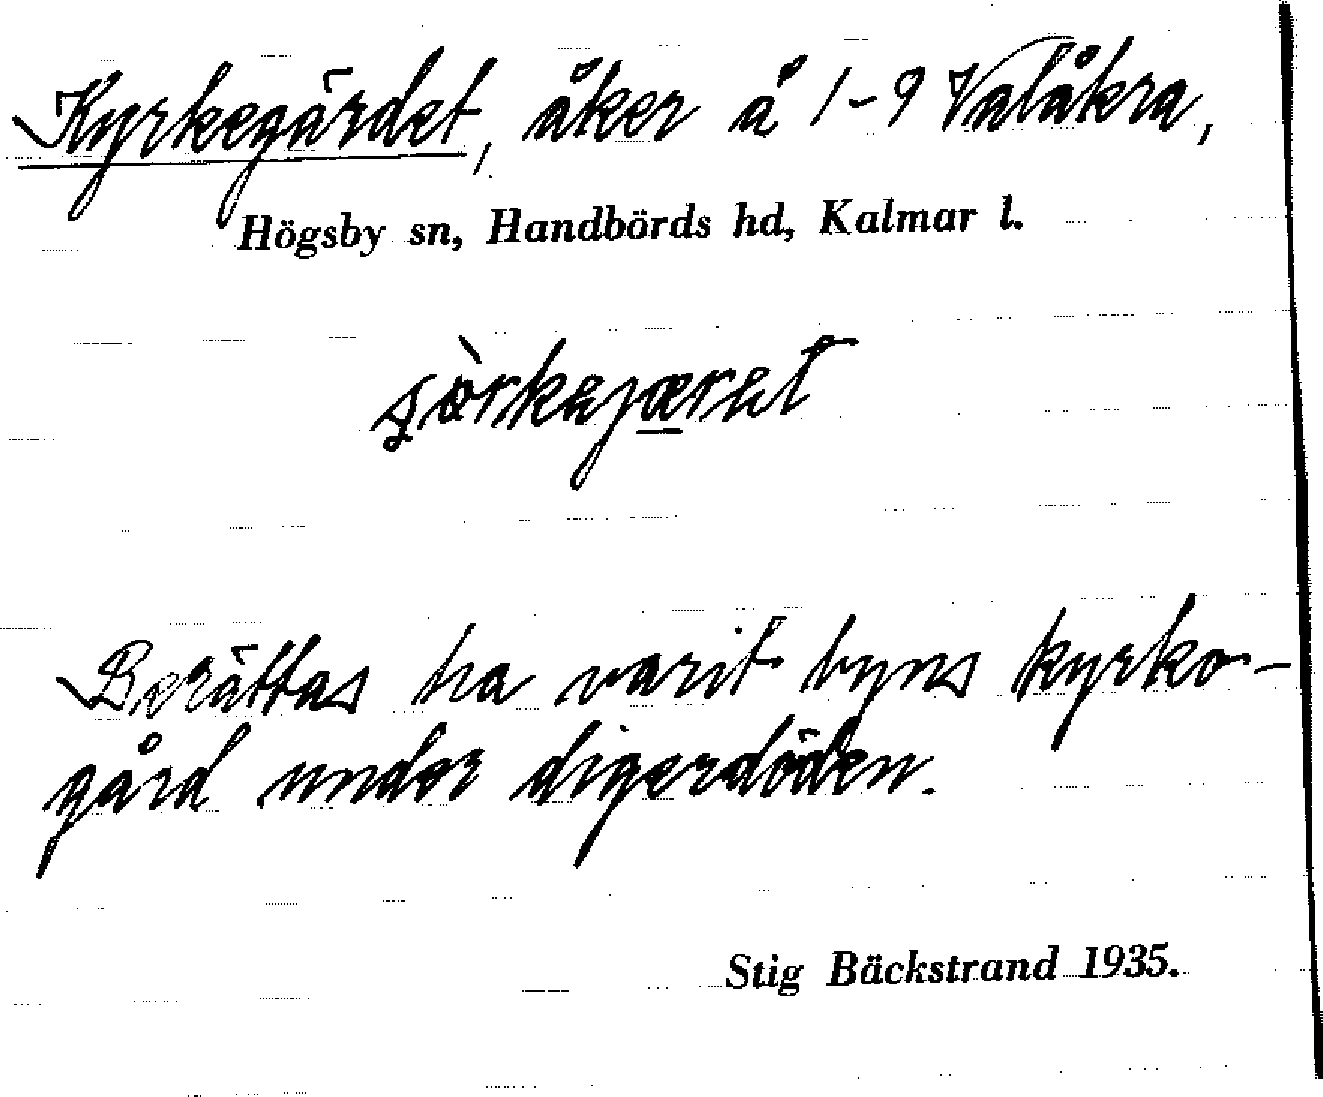 Kyrkegärdet, åker å 1-9 Valåkra,
Högsby sn, Handbörds hd, Kalmar l.
Berättas ha varit byns kyrko-
gård under digerdöden.
Stig Bäckstrand 1935.